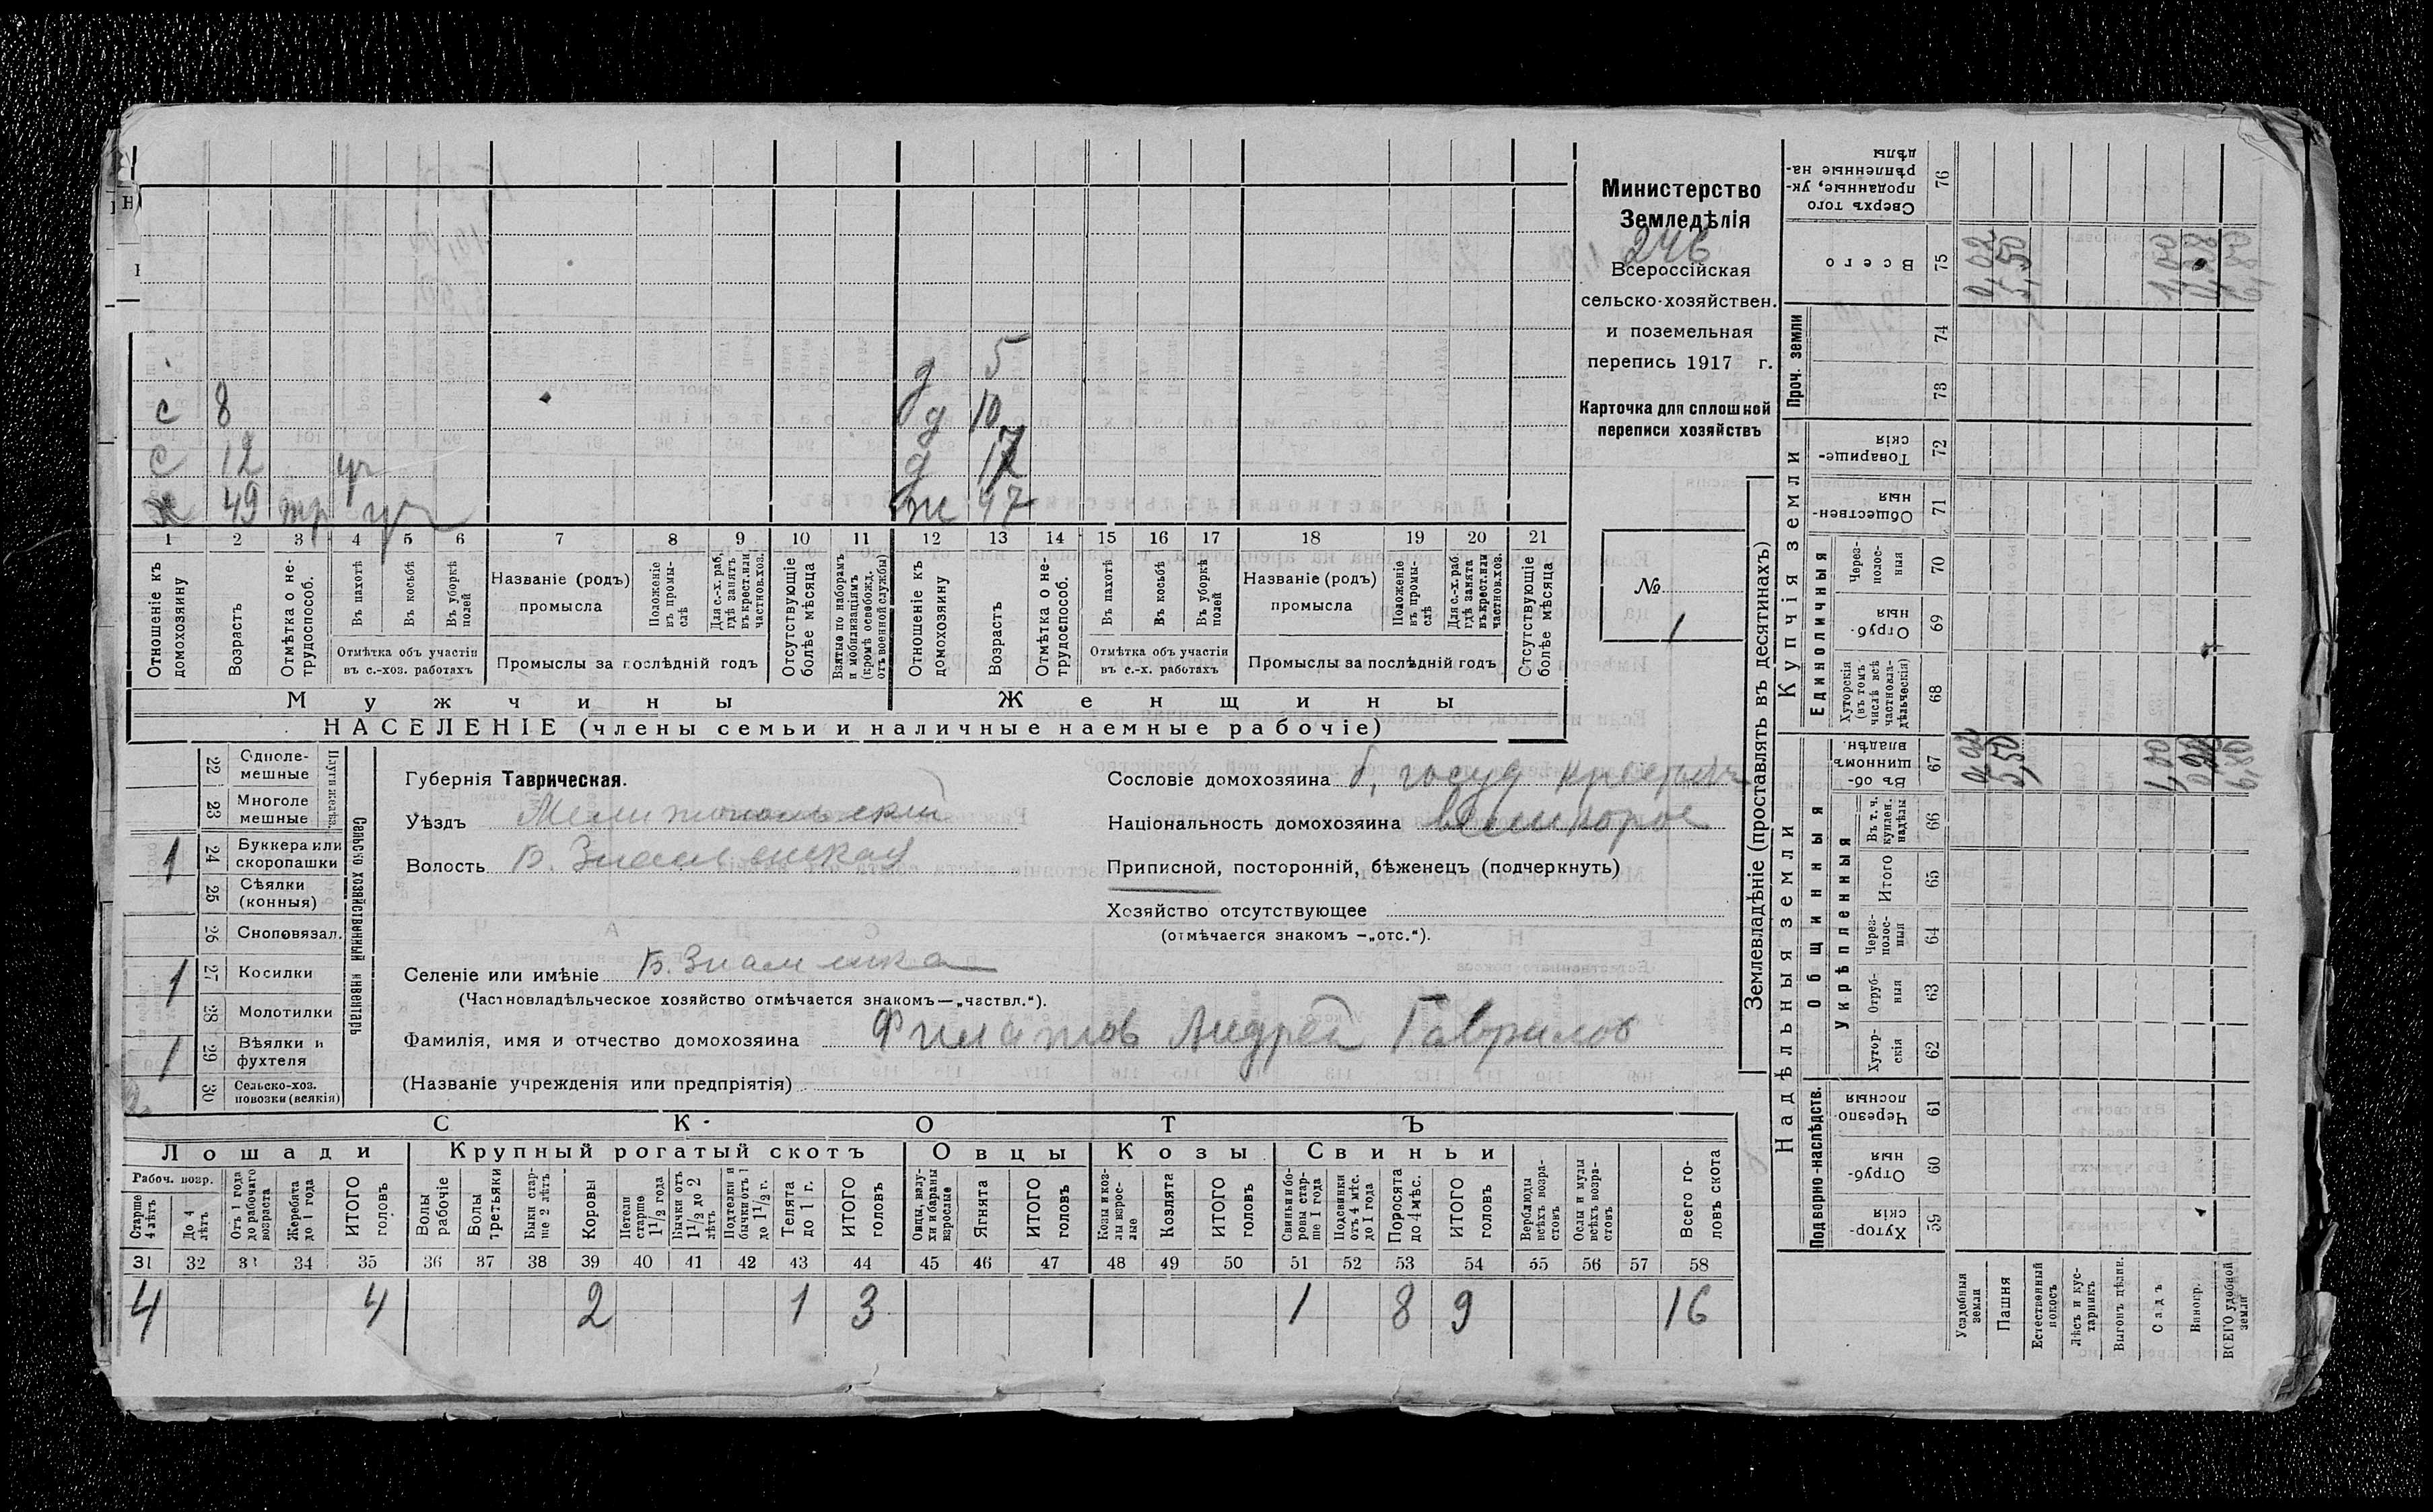 Министерство
Земледѣлія
246
Всероссійская
сельско-хозяйствен.
и поземельная
перепись 1917 г.
Карточка для сплошной
переписи хозяйствъ
№
1
д 5
с 8 д 10
с 12 уч д 17
х 49 тр уч ж 47
1 2 3 4 5 6 7 8 9 10 11 12 13 14 15 16 17 18 19 20 21
Отношеніе къ домохозяину
Возрастъ
Отмѣтка о не-трудоспособ.
Въ пахотѣ
Въ косьбѣ
Въ уборкѣ полей
Отмѣтка объ участіи
въ с.-хоз. работахъ
Названіе (родъ)
промысла
Положеніе въ промы-слѣ
Для с.-х. раб. гдѣ занятъ въ крест. или частнов. хоз.
Промыслы за послѣдній годъ
Отсутствующіе болѣе мѣсяца
Взятые по наборамъ и мобилизаціямъ (кромѣ освобожд. отъ военной службы)
Отношеніе къ домохозяину
Возрастъ
Отмѣтка о не-трудоспособ.
Въ пахотѣ
Въ косьбѣ
Въ уборкѣ полей
Отмѣтка объ участіи
въ с.-х. работахъ
Названіе (родъ)
промысла
Положеніе въ промы-слѣ
Для с.-х. раб. гдѣ занята въ крест. или частнов. хоз.
Промыслы за послѣдній годъ
Отсутствующіе болѣе мѣсяца
Мужчины Женщины
НАСЕЛЕНІЕ (члены семьи и наличные наемные рабочіе)
Сельско хозяйственный инвентарь
Плуги желѣз.
22 Одноле-мешные
23 Многоле мешные
1 24 Буккера или скоропашки
25 Сѣялки (конныя)
26 Сноповязал.
1 27 Косилки
28 Молотилки
1 29 Вѣялки и фухтеля
2 30 Сельско-хоз. повозки (всякія)
Губернія Таврическая.
Уѣздъ Мелитопольский
Волость Б. Знаменская
Сословіе домохозяина б. госуд крестьян
Національность домохозяина великорос
Приписной, посторонній, бѣженецъ (подчеркнуть)
Хозяйство отсутствующее
(отмѣчается знакомъ —„отс.“).
Селеніе или имѣніе Б. Знаменка
(Частновладѣльческое хозяйство отмѣчается знакомъ—„частвл.“).
Фамилія, имя и отчество домохозяина Филатов Андрей Гаврилов
(Названіе учрежденія или предпріятія)
СКОТЪ
Лошади Крупный рогатый скотъ Овцы Козы Свиньи
Рабоч. возр.
Старше 4 лѣтъ
До 4 лѣтъ
Отъ 1 года до рабочаго возраста
Жеребята до 1 года
ИТОГО головъ
Волы рабочіе
Волы третьяки
Быки стар-ше 2 лѣтъ
Коровы
Нетели старше 1½ года
Бычки отъ 1½ до 2 лѣтъ
Подтелки и бычки отъ 1 до 1½ г.
Телята до 1 г.
ИТОГО головъ
Овцы, валу-хи и бараны взрослые
Ягнята
ИТОГО головъ
Козы и коз-лы взрос-лые
Козлята
ИТОГО головъ
Свиньи и бо-ровы стар-ше 1 года
Подсвинки отъ 4 мѣс. до 1 года
Поросята до 4 мѣс.
ИТОГО головъ
Верблюды всѣхъ возра-стовъ
Ослы и мулы всѣхъ возра-стовъ
Всего го-ловъ скота
31 32 33 34 35 36 37 38 39 40 41 42 43 44 45 46 47 48 49 50 51 52 53 54 55 56 57 58
4 4 2 1 3 1 8 9 16
Землевладѣніе (проставлять въ десятинахъ)
Надѣльныя земли Купчія земли Проч. земли
Подворно-наслѣдств. Общинныя Единоличныя
Укрѣпленныя
Хутор-скія 59
Отруб-ныя 60
Черезпо-лосныя 61
Хутор-скія 62
Отруб-ныя 63
Через-полос-ныя 64
Итого 65
Въ т. ч. куплен. надѣлы 66
Въ об-щинномъ владѣн. 67
Хуторскія (въ томъ числѣ всѣ частновла-дѣльческія) 68
Отруб-ныя 69
Через-полос-ныя 70
Обществен-ныя 71
Товарище-скія 72
73
74
Всего 75
Сверхъ того проданные, ук-рѣпленные на-дѣлы 76
Усадебныя земли
Пашня 5,50 5,50
Естественный покосъ
Лѣсъ и кус-тарникъ
Выгонъ цѣлин.
Садъ 1,00
Виногр.
ВСЕГО удобной земли